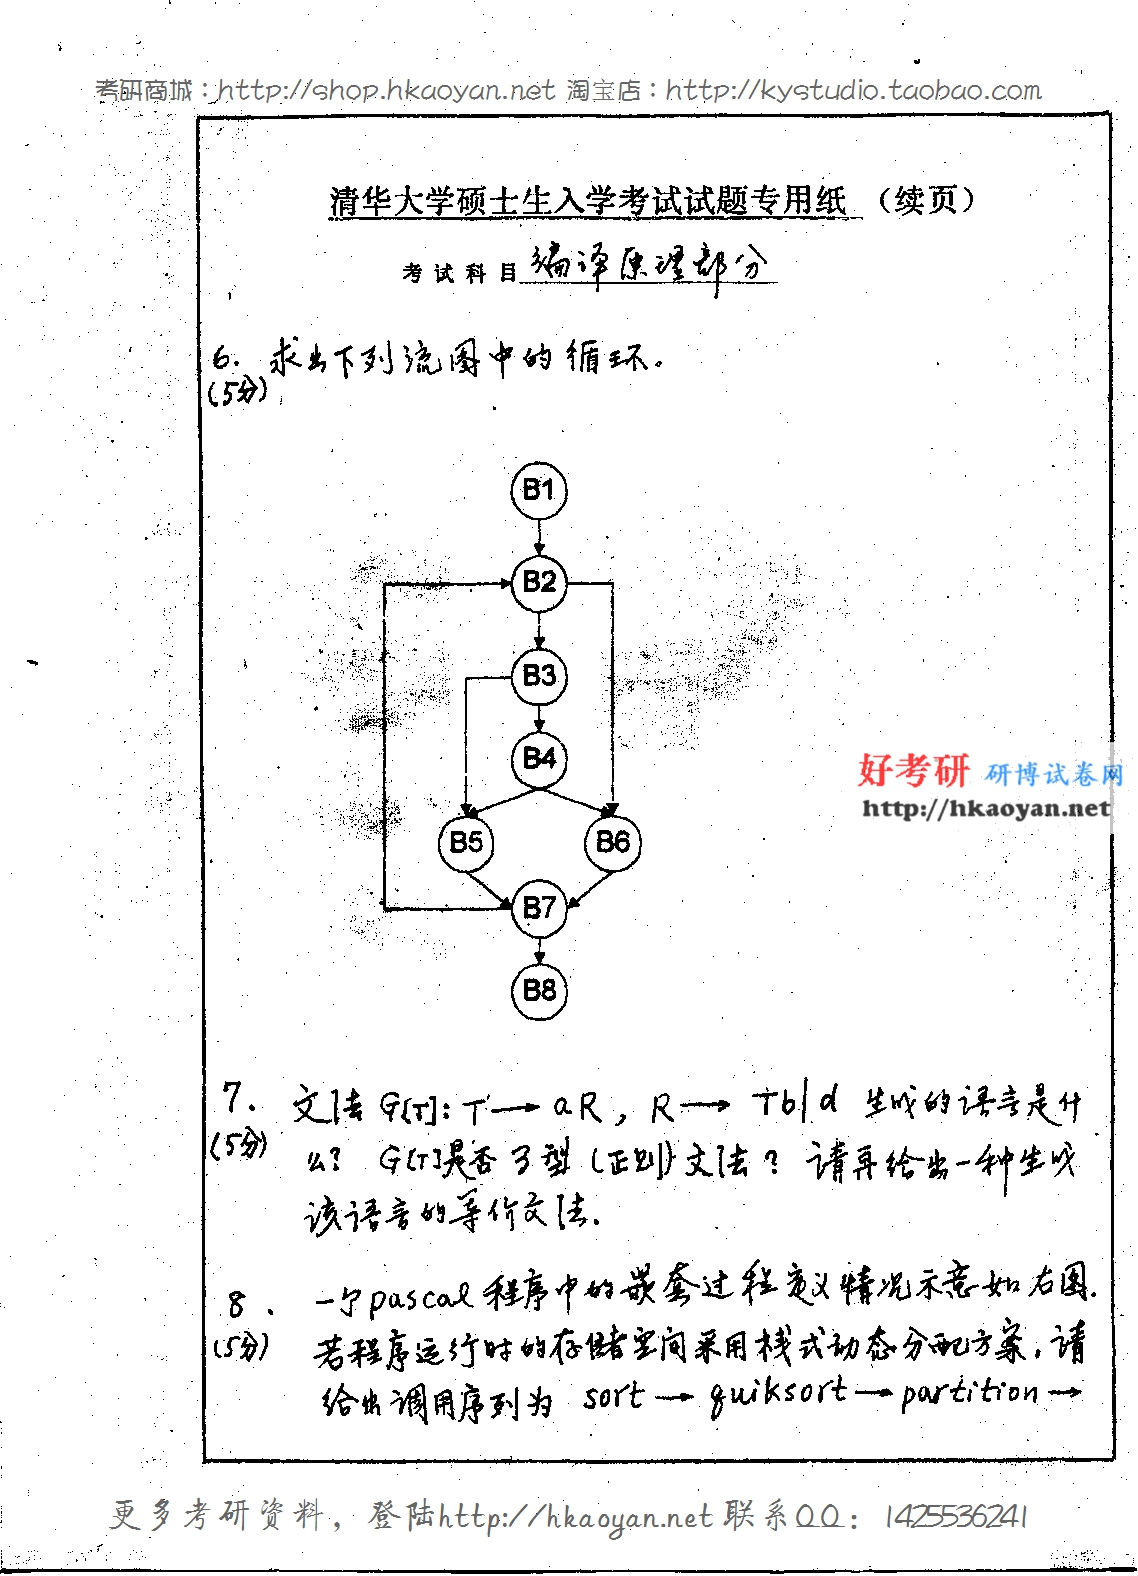 考研商城：http://shop.hkaoyan.net 淘宝店：http://kystudio.taobao.com
清华大学硕士生入学考试试题专用纸 （续页）
考试科目 编译原理部分
6. 求出下列流图中的循环。
(5分)
B1
B2
B3
B4
B5 B6
B7
B8
好考研 研博试卷网
http://hkaoyan.net
7. 文法 G[T]: T → aR, R → Tb|d 生成的语言是什
(5分) 么? G[T]是否3型 (正则) 文法? 请再给出一种生成
该语言的等价文法.
8. 一个pascal程序中的嵌套过程定义情况示意如右图.
(5分) 若程序运行时的存储空间采用栈式动态分配方案, 请
给出调用序列为 sort → quiksort → partition →
更多考研资料，登陆http://hkaoyan.net 联系QQ：1425536241